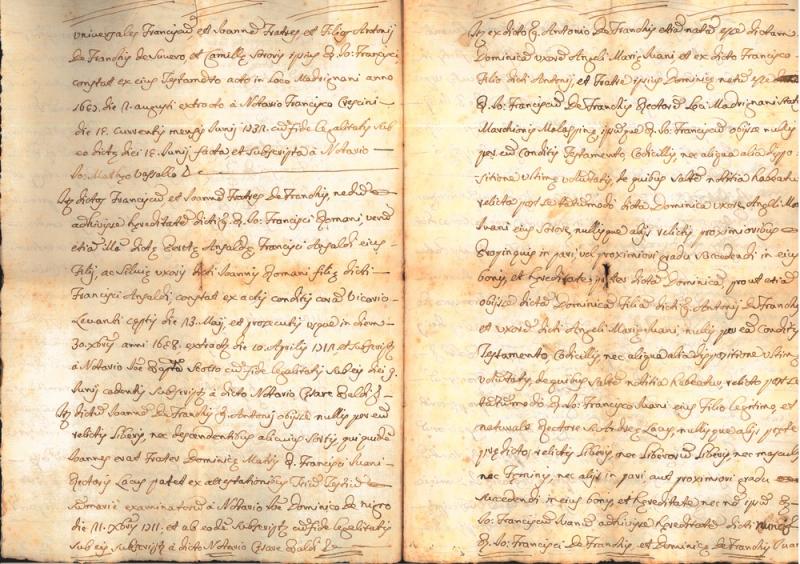 universales Franciscũ et Joannẽ Fratres et Filios Antonij
de Franchis de Suvero et Camillę Sororis ipsius q. Jo: Francisci
constat ex eius Testamẽto acto in Loco Madrignani anno
die 2. augusti extracto à Notario Francisco Crescini
die 18. Currentis mensis Junij cũ fide legalitatis sub
eodẽ die 18. Junij facta et subscripta à Notario
Jo: Matheo Vassallo
Itẽ dictos Franciscũ et Joannẽ Fratres de Franchis, nedũ
adhivisse hęreditatẽ dicti q. Jo: Francisci Romani, verũ
etiã illã dictę Francisci Ansaldi eius
Filij, ac Silvię uxoris dicti Joannis Romani filię dicti
Francisci Ansaldi, constat ex actis conditis corã Vicario
Levanti cęptis die 13. Maij, et prosecutis usque in diem
30. Xbris anni extractis die 10. Aprilis et subscriptis
à Notario cũ fide legalitatis sub eis diei
Junij cadentis subscriptę à dicto Notario Cęsare Baldi
Itẽ dictũ Joannẽ de Franchis q. Antonij obijsse nullis per eũ
relictis liberis, nec descendentibus alicuius sortis, qui quidẽ
Joannes erat Frater Dominicę Matris q. Francisci Ivani
Rectoris Lacus patet ex attestationibus Testiũ
summariè examinatorũ à Notario Dominico de nigro
die 21. Xbris et ab eodẽ subscriptis cũ fide legalitatis
sub eis subscriptę à dicto Notario Cęsare Baldi
Itẽ ex dicto q. Antonio de Franchis etiã natã esse dictam
Dominicã uxorẽ Angeli Marię Ivani et ex dicto Francisco
Filio dicti Antonij, et Fratre ipsius Dominicę natũ esse
q. Jo: Franciscũ de Franchis Rectorẽ Loci Madrignani Status
Marchionis Malaspinę ipsumque q. Jo: Franciscũ obijsse nullis
per eũ conditis Testamento, Codicillis, nec aliqua alia dispo-
sitione ultimę voluntatis, de quibus saltẽ notitia habeatur
relicta post se tantũmodo dicta Dominica uxore Angeli Marię
Ivani eius Sorore, nullisque alijs relictis proximioribus
Propinquis in pari vel proximiori gradu succedendi in eius
bonis, et hęreditate pręter dictã Dominicã, prout etiã
obijsse dictã Dominicã Filiã dicti q. Antonij de Franchis
et uxorẽ dicti Angeli Marię Ivani nullis per eã conditis
Testamento, Codicillis, nec aliqua alia dispositione ultimę
voluntatis, de quibus saltẽ notitia habeatur, relicto post se
tantũmodo q. Jo: Francisco Ivani eius Filio legitimo, et
naturale Rectore S. Andreę Lacus, nullisque alijs pręter
prędicto, relictis liberis, nec liberorũ liberis, nec masculis
nec Feminis, nec alijs in pari aut proximiori gradu
succedendi in eius bonis, et hęreditate nec nõ ipsũ q.
Jo: Franciscũ Ivanũ adhivisse hęreditatẽ dicti nunc
q. Jo: Francisci de Franchis et Dominicę de Franchis